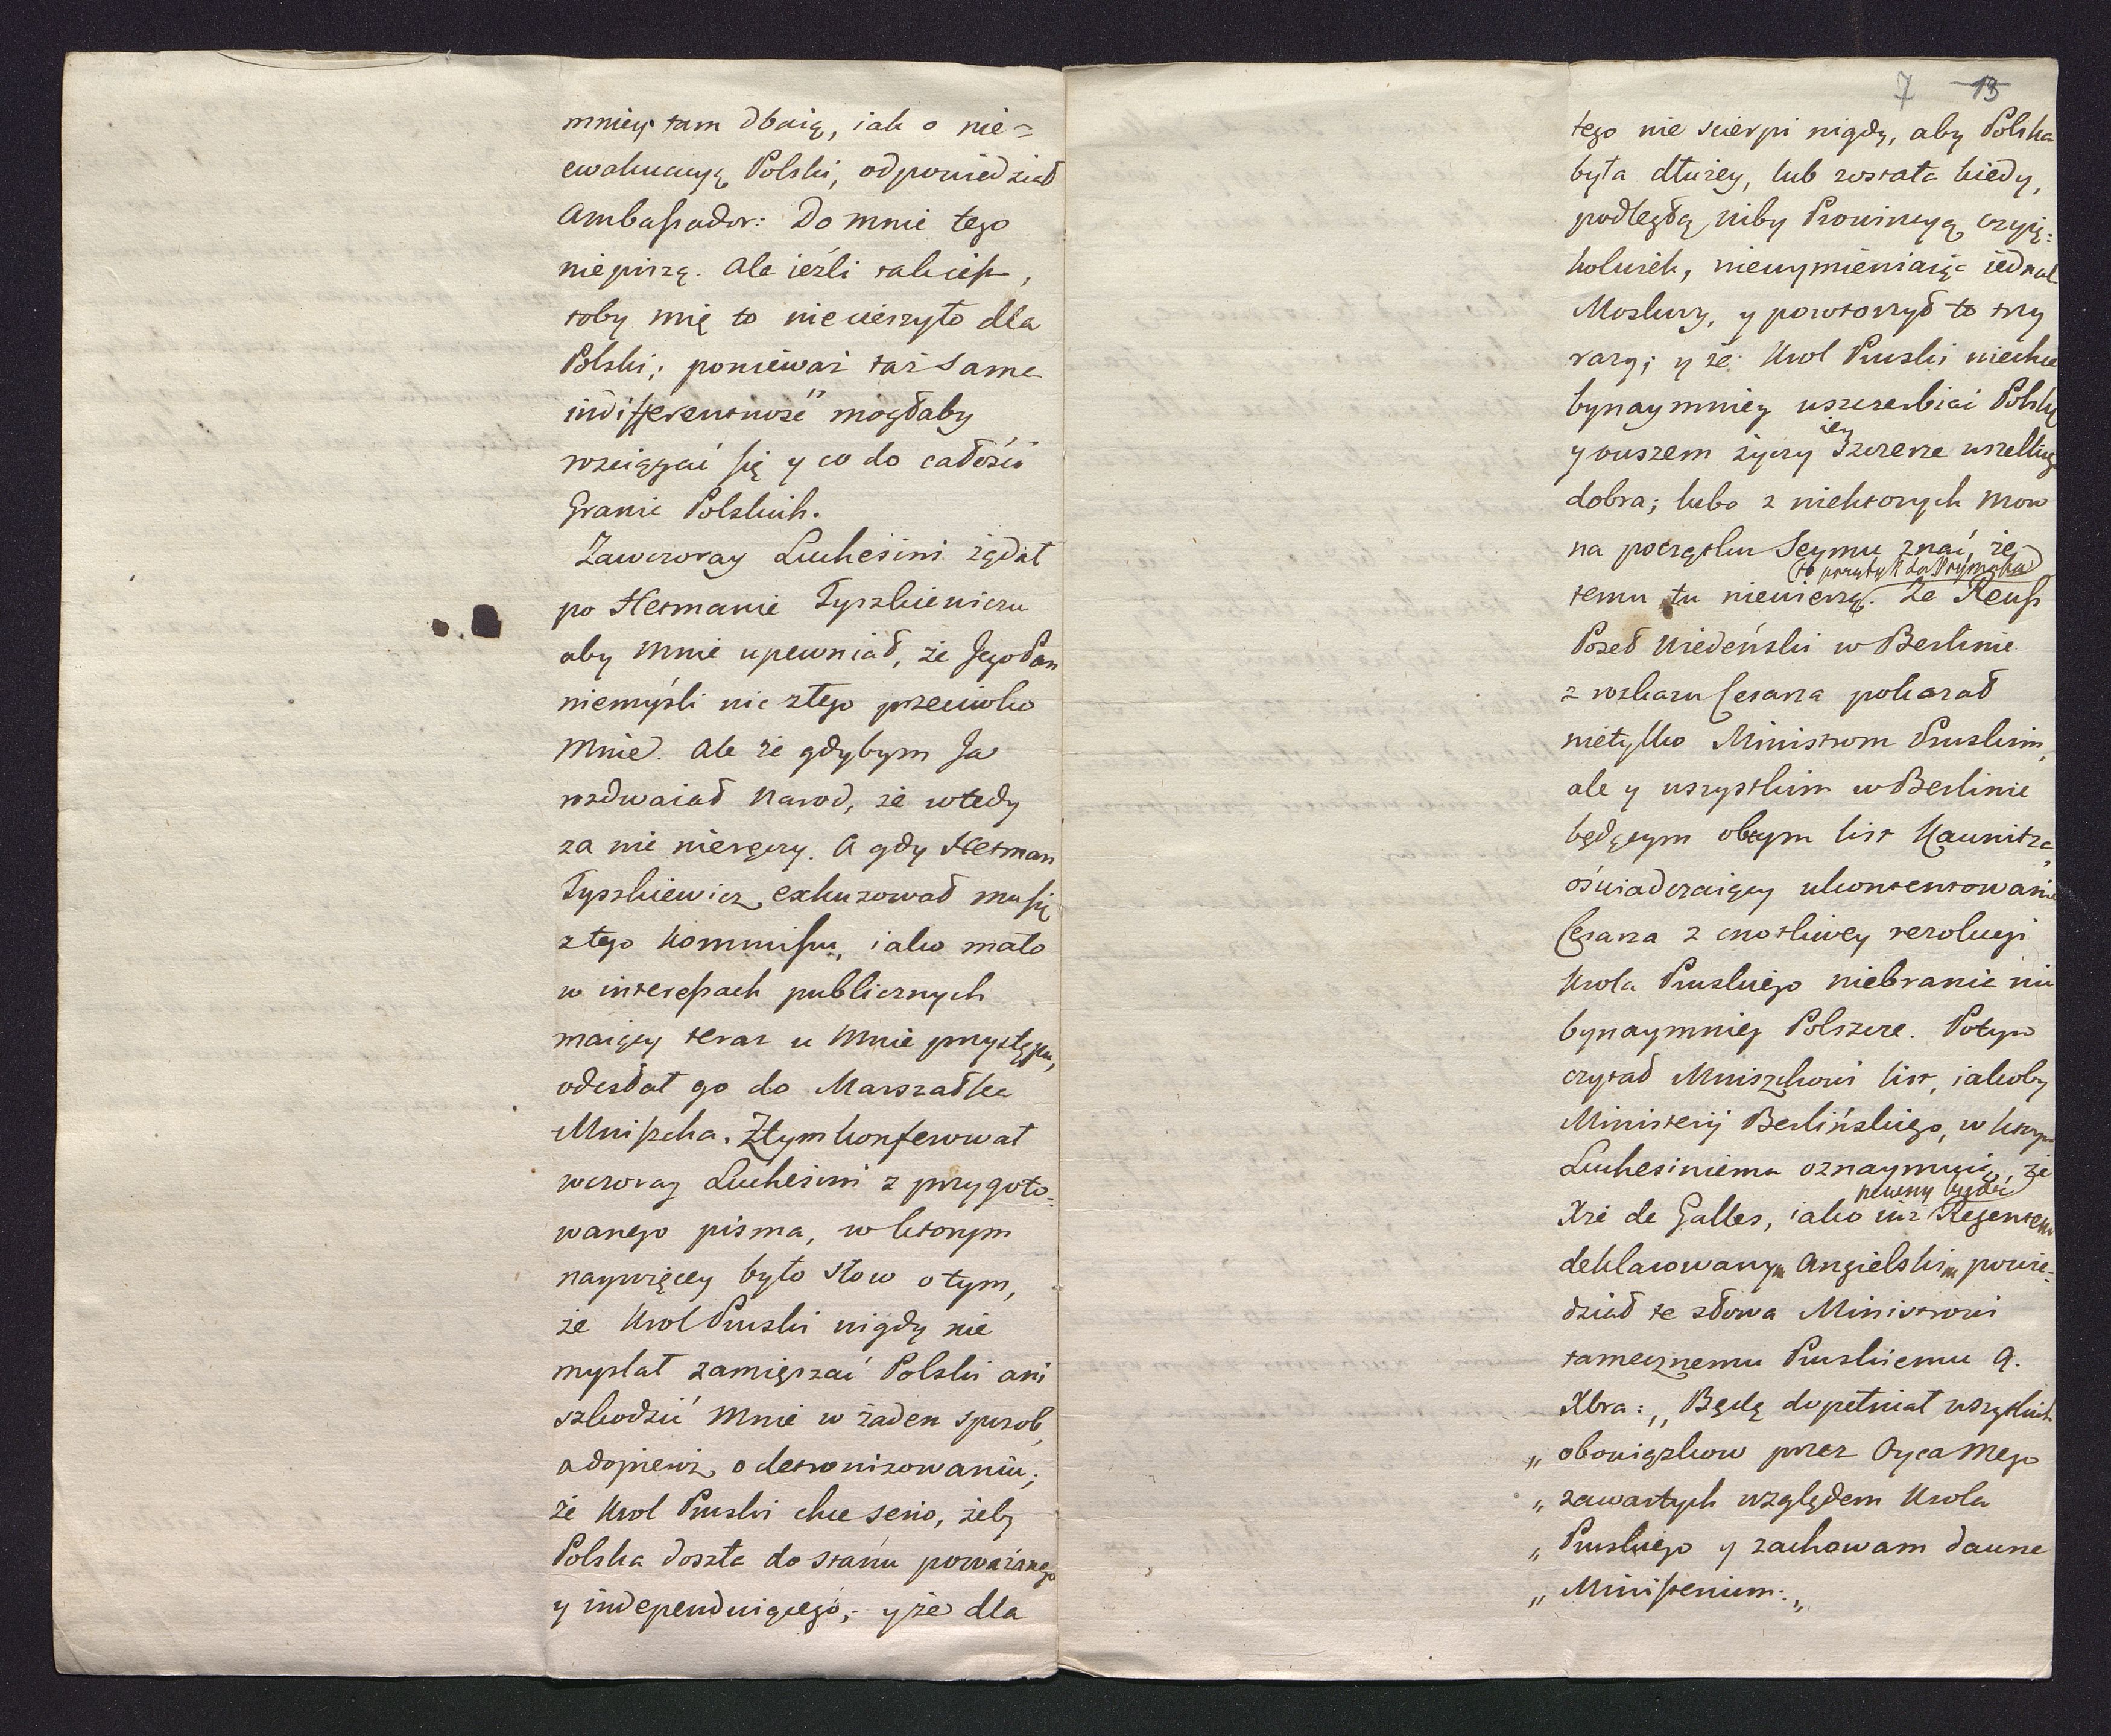 mniey tam dbaią, iak o nie=
ewakuacyą Polski, odpowiedział
Ambaſsador: Do mnie tego
niepiszą. Ale ieźli takieſt,
toby mię to niecieszyło dla
Polski; ponieważ taż sama
indifferentność mogłaby
rościągać się y co do całości
Granic Polskich.
Zawczoray Luchesini żądał
po Hetmanie Tyszkiewiczu
aby mnie upewniał, że Jego Pan
niemyśli nic złego przeciwko
mnie. Ale że gdybym Ja
rozdwaiał Narod, że wtedy
za nic nieręczy. A gdy Hetman
Tyszkiewicz exkuzował mu się
z tego kommiſsu, iako mało
w intereſsach publicznych
maiący teraz u mnie przystępu,
odesłał go do Marszałka
Mniſzcha. Z tym konferował
wczoray Luchesini z przygoto=
wanego pisma, w ktorym
naywięcey było słow o tym,
że Krol Pruski nigdy nie
myslał zamięszać Polski ani
szkodzić mnie w żaden sposob,
a dopieroż o detronizowaniu;
że Krol Pruski chce serio, żeby
Polska doszła do stanu poważnego
y independuiącego; y że dla
7 13
tego nie scierpi nigdy, aby Polska
była dłużey, lub została kiedy,
podległą niby Prowincyą czyią=
kolwiek, niewymieniaiąc iednak
Moskwy, y powtorzył to trzy
razy; y że Krol Pruski niechce
bynaymniey uszczerbiać Polskę
iey
y owszem życzy szczerze wszelkiego
dobra; lubo z niektorych mow
na początku Seymu znać, że
(to przytyk do Krymskiu)
temu tu niewierzą. Że Reuſs
Poseł Wiedeński w Berlinie
z rozkazu Cesarza pokazał
nietylko Ministrom Pruskim,
ale y wszystkim w Berlinie
będącym obcym list Kaunitza,
oświadczaiący ukontentowanie
Cesarza z cnotliwey rezolucyi
Krola Pruskiego niebrania nic
bynaymniey Polszcze. Potym
czytał Mniszchowi list, iakoby
Ministerii Berlińskiego, w ktorym
Luchesiniemu oznaymuią, że
pewny będąc
Xże de Galles, iako już Regentem
deklarowanym Angielskim powie=
dział te słowa Ministrowi
tamecznemu Pruskiemu 9.
Xbra: „Będę dopełniał wszystkich
„ obowiązkow przez Oyca Mego
„ zawartych względem Krola
„ Pruskiego y zachowam dawne
„ Ministerium:„